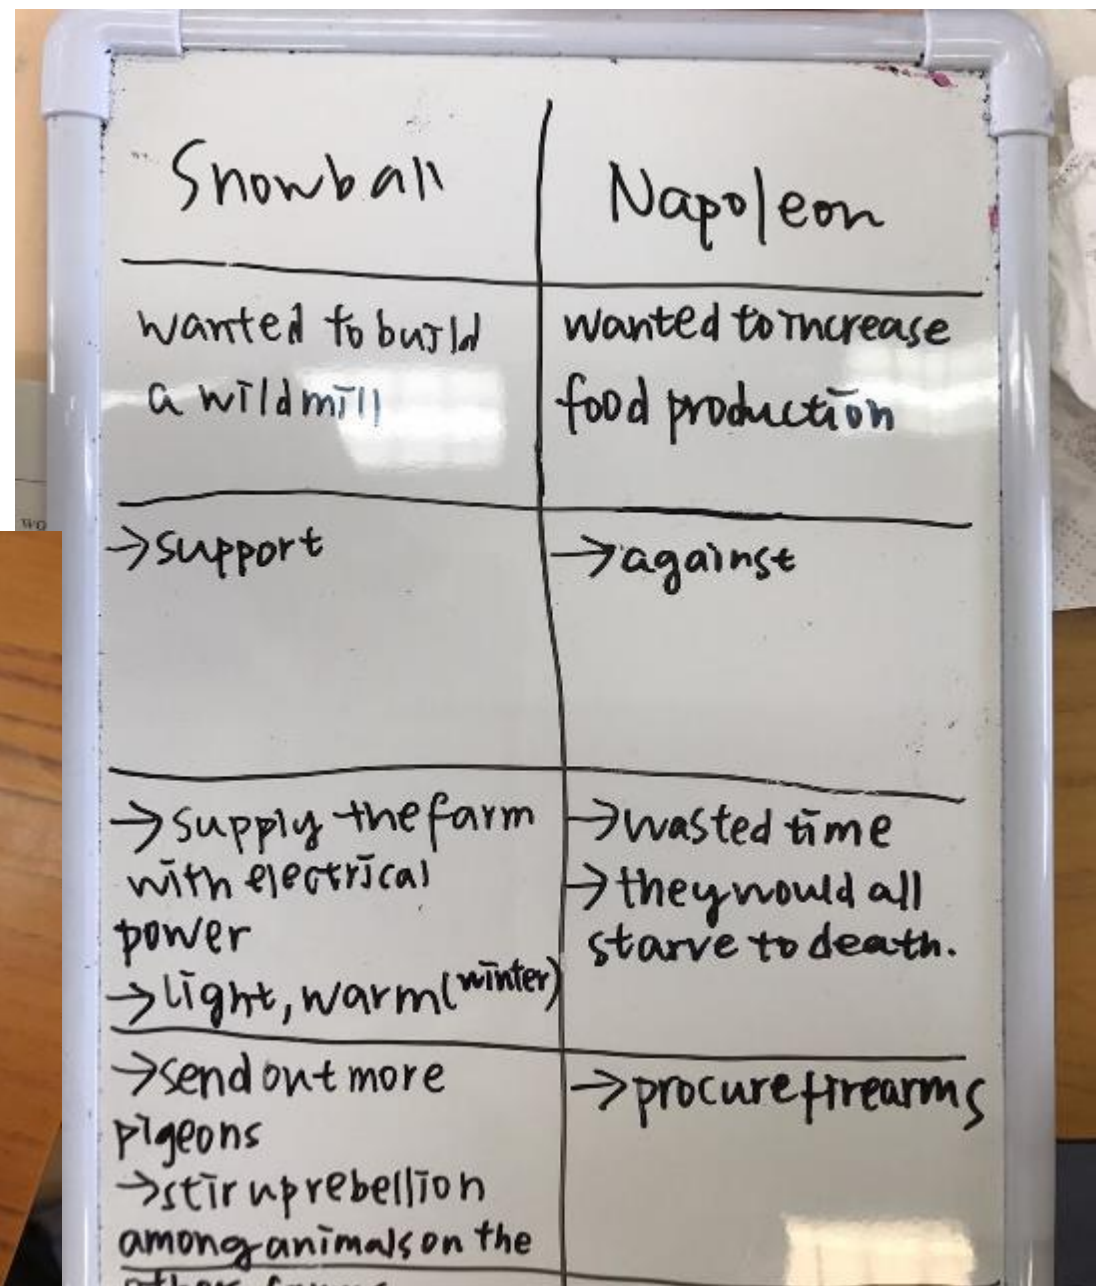 Snowball
Napoleon
wanted to build
a wildmill
wanted to increase
food production
→support
→against
→supply the farm
with electrical
power
→light, warm (winter)
→wasted time
→they would all
starve to death.
→send out more
pigeons
→stir up rebellion
among animals on the
→procure firearms